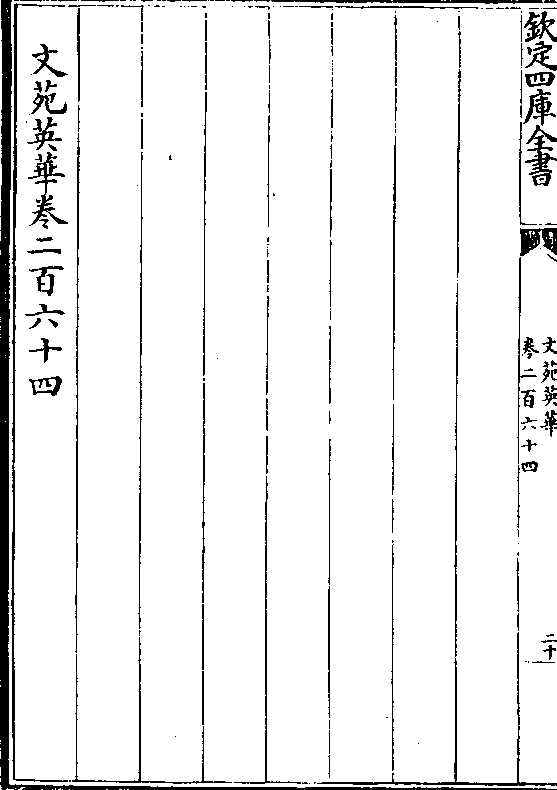 欽定四庫全書
文苑英華
卷二百六十四
二十
文苑英華卷二百六十四